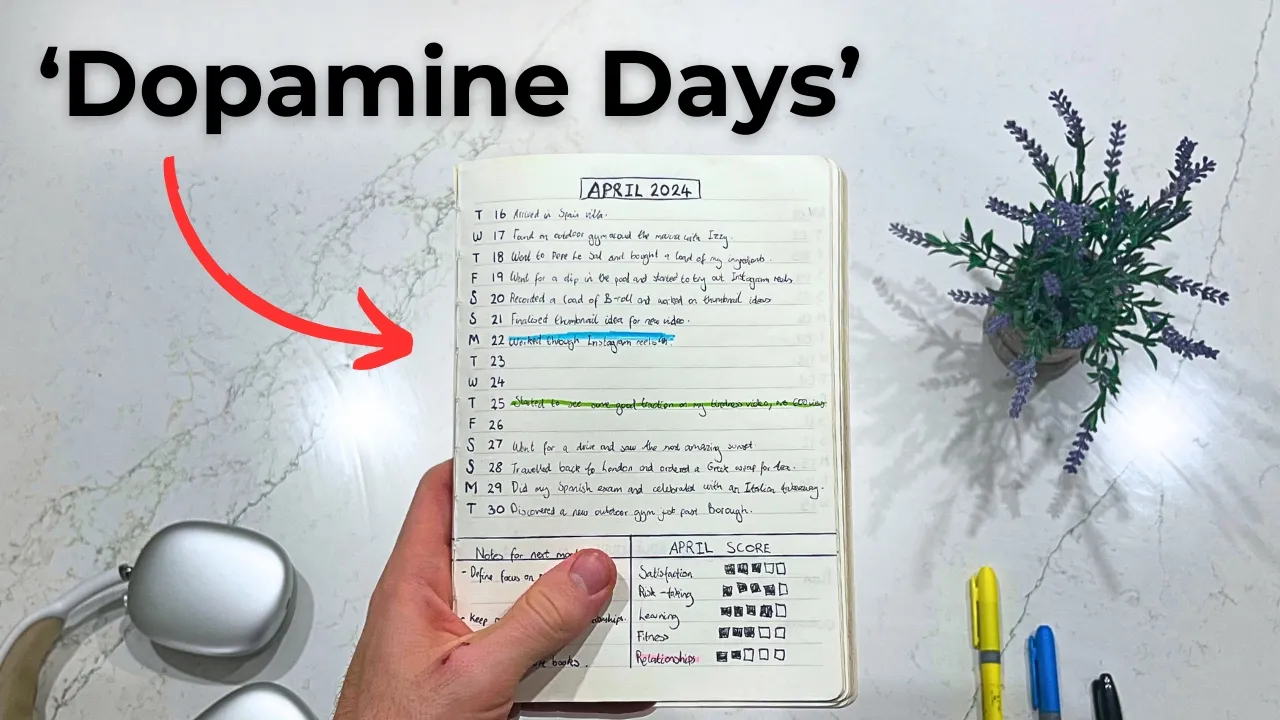 ‘Dopamine Days’
APRIL 2024
T 16 Arrived in Spain villa.
W 17 Found an outdoor gym around the marina with Izzy.
T 18 Went to Pepe La Sal and bought a load of my ingredients.
F 19 Went for a dip in the pool and started to try out Instagram reels
S 20 Recorded a load of B-roll and worked on thumbnail ideas
S 21 Finalised thumbnail idea for new video.
M 22 Worked through Instagram reels
T 23
W 24
T 25 Started to see some good traction on my video, 600 views
F 26
S 27 Went for a drive and saw the most amazing sunset.
S 28 Travelled back to London and ordered a Greek wrap for tea.
M 29 Did my Spanish exam and celebrated with an Italian takeaway.
T 30 Discovered a new outdoor gym just past Borough.
Notes for next
- Define focus on
- Keep
books.
APRIL SCORE
Satisfaction
Risk-taking
Learning
Fitness
Relationships